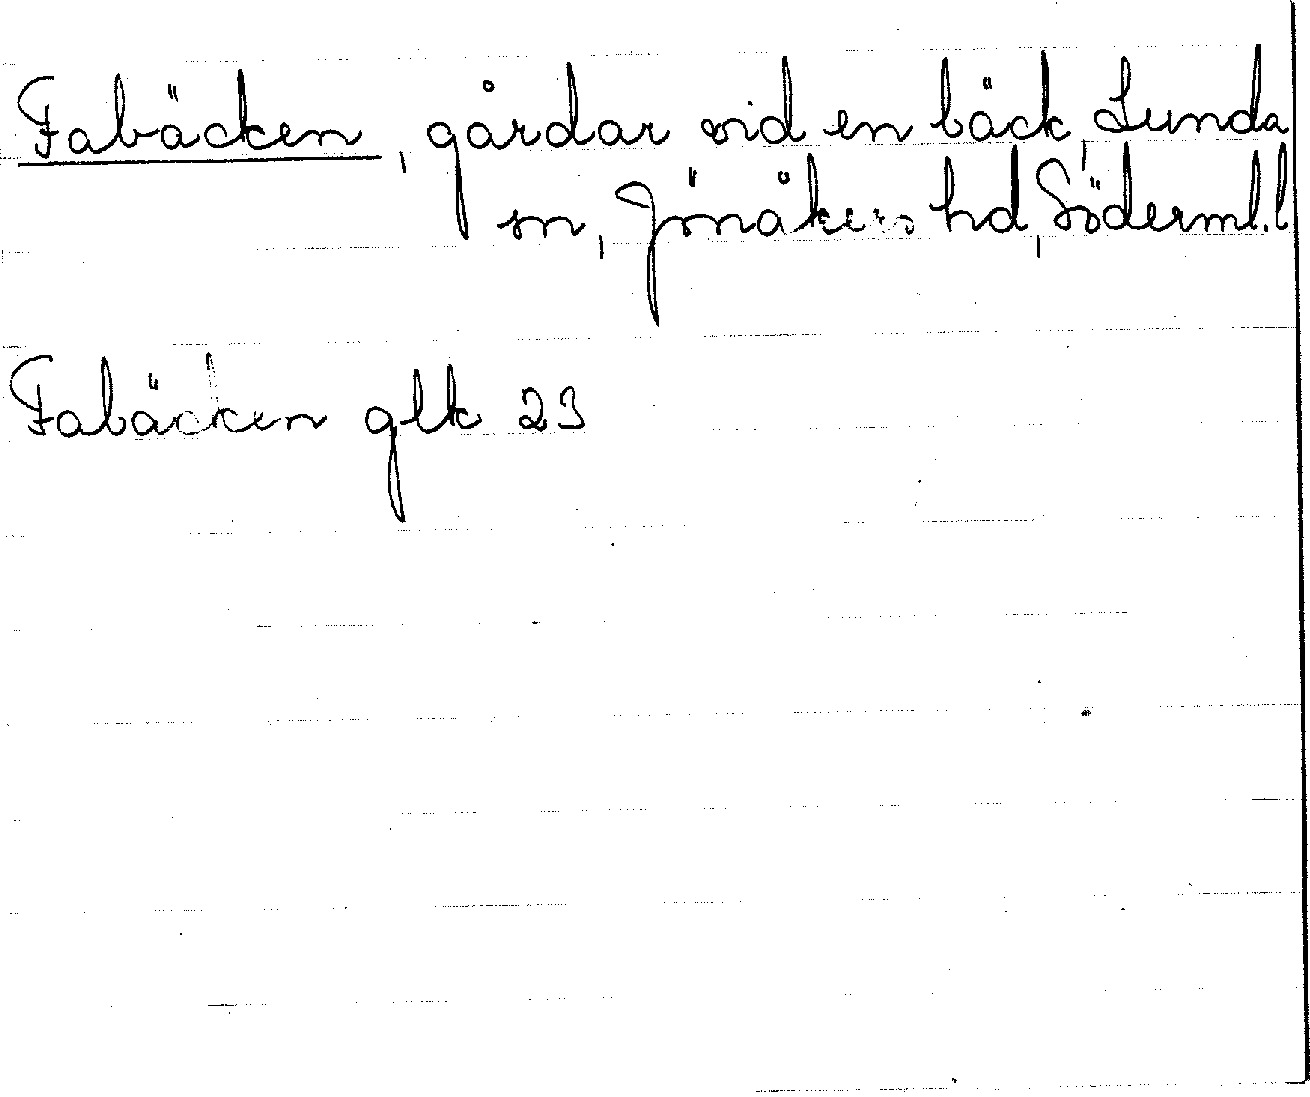 Fabäcken, gårdar vid en bäck, Lunda
sn, Jönåkers hd, Söderml. l
Fabäcken glk 23